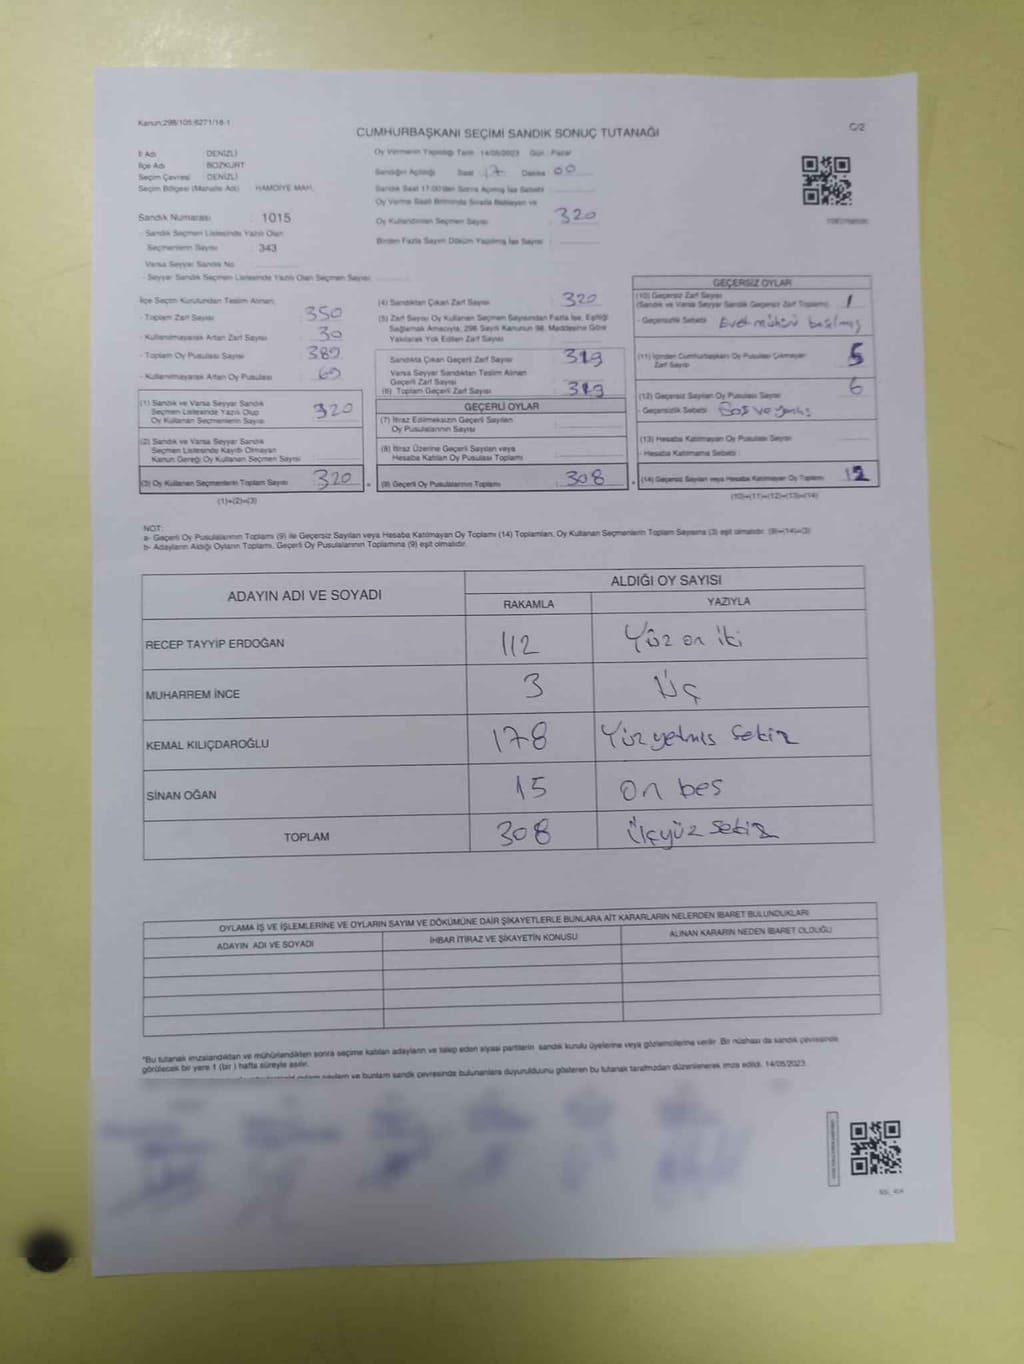 Kanun:298/105;6271/18-1
CUMHURBAŞKANI SEÇİMİ SANDIK SONUÇ TUTANAĞI
C/2
İl Adı : DENİZLİ
İlçe Adı : BOZKURT
Seçim Çevresi : DENİZLİ
Seçim Bölgesi (Mahalle Adı) : HAMDİYE MAH.
Sandık Numarası : 1015
Sandık Seçmen Listesinde Yazılı Olan
Seçmenlerin Sayısı : 343
Varsa Seyyar Sandık No
- Seyyar Sandık Seçmen Listesinde Yazılı Olan Seçmen Sayısı:
Oy Vermenin Yapıldığı Tarih : 14/05/2023 Gün : Pazar
Sandığın Açıldığı Saat 17 Dakika 00
Sandık Saat 17:00'den Sonra Açılmış İse Sebebi
Oy Verme Saati Bitiminde Sırada Bekleyen ve
Oy Kullandırılan Seçmen Sayısı 320
Birden Fazla Sayım Döküm Yapılmış İse Sayısı
İlçe Seçim Kurulundan Teslim Alınan;
- Toplam Zarf Sayısı 350
- Kullanılmayarak Artan Zarf Sayısı 30
- Toplam Oy Pusulası Sayısı 389
- Kullanılmayarak Artan Oy Pusulası 69
(1) Sandık ve Varsa Seyyar Sandık
Seçmen Listesinde Yazılı Olup
Oy Kullanan Seçmenlerin Sayısı 320
(2) Sandık ve Varsa Seyyar Sandık
Seçmen Listesinde Kayıtlı Olmayan
Kanun Gereği Oy Kullanan Seçmen Sayısı
(3) Oy Kullanan Seçmenlerin Toplam Sayısı 320
(1)+(2)=(3)
(4) Sandıktan Çıkan Zarf Sayısı 320
(5) Zarf Sayısı Oy Kullanan Seçmen Sayısından Fazla İse, Eşitliği
Sağlamak Amacıyla, 298 Sayılı Kanunun 98. Maddesine Göre
Yakılarak Yok Edilen Zarf Sayısı
Sandıkta Çıkan Geçerli Zarf Sayısı 319
Varsa Seyyar Sandıktan Teslim Alınan
Geçerli Zarf Sayısı
(6) Toplam Geçerli Zarf Sayısı 319
GEÇERLİ OYLAR
(7) İtiraz Edilmeksizin Geçerli Sayılan
Oy Pusulalarının Sayısı
(8) İtiraz Üzerine Geçerli Sayılan veya
Hesaba Katılan Oy Pusulası Toplamı
(9) Geçerli Oy Pusulalarının Toplamı 308
GEÇERSİZ OYLAR
(10) Geçersiz Zarf Sayısı
(Sandık ve Varsa Seyyar Sandık Geçersiz Zarf Toplamı) 1
- Geçersizlik Sebebi Evet mührü basılmış
(11) İçinden Cumhurbaşkanı Oy Pusulası Çıkmayan
Zarf Sayısı 5
(12) Geçersiz Sayılan Oy Pusulası Sayısı 6
- Geçersizlik Sebebi Boş ve yanlış
(13) Hesaba Katılmayan Oy Pusulası Sayısı
- Hesaba Katılmama Sebebi
(14) Geçersiz Sayılan veya Hesaba Katılmayan Oy Toplamı 12
(10)+(11)+(12)+(13)=(14)
NOT:
a- Geçerli Oy Pusulalarının Toplamı (9) ile Geçersiz Sayılan veya Hesaba Katılmayan Oy Toplamı (14) Toplamları, Oy Kullanan Seçmenlerin Toplam Sayısına (3) eşit olmalıdır. (9)+(14)=(3)
b- Adayların Aldığı Oyların Toplamı, Geçerli Oy Pusulalarının Toplamına (9) eşit olmalıdır.
ADAYIN ADI VE SOYADI
ALDIĞI OY SAYISI
RAKAMLA YAZIYLA
RECEP TAYYİP ERDOĞAN 112 Yüz on iki
MUHARREM İNCE 3 Üç
KEMAL KILIÇDAROĞLU 178 Yüz yetmiş sekiz
SİNAN OĞAN 15 On beş
TOPLAM 308 Üçyüz sekiz
OYLAMA İŞ VE İŞLEMLERİNE VE OYLARIN SAYIM VE DÖKÜMÜNE DAİR ŞİKAYETLERLE BUNLARA AİT KARARLARIN NELERDEN İBARET BULUNDUKLARI
ADAYIN ADI VE SOYADI İHBAR İTİRAZ VE ŞİKAYETİN KONUSU ALINAN KARARIN NEDEN İBARET OLDUĞU
*Bu tutanak imzalandıktan ve mühürlendikten sonra seçime katılan adayların ve talep eden siyasi partilerin sandık kurulu üyelerine veya gözlemcilerine verilir. Bir nüshası da sandık çevresinde
görülecek bir yere 1 (bir ) hafta süreyle asılır.
ve bunların sandık çevresinde bulunanlara duyurulduunu gösteren bu tutanak tarafımızdan düzenlenerek imza edildi. 14/05/2023